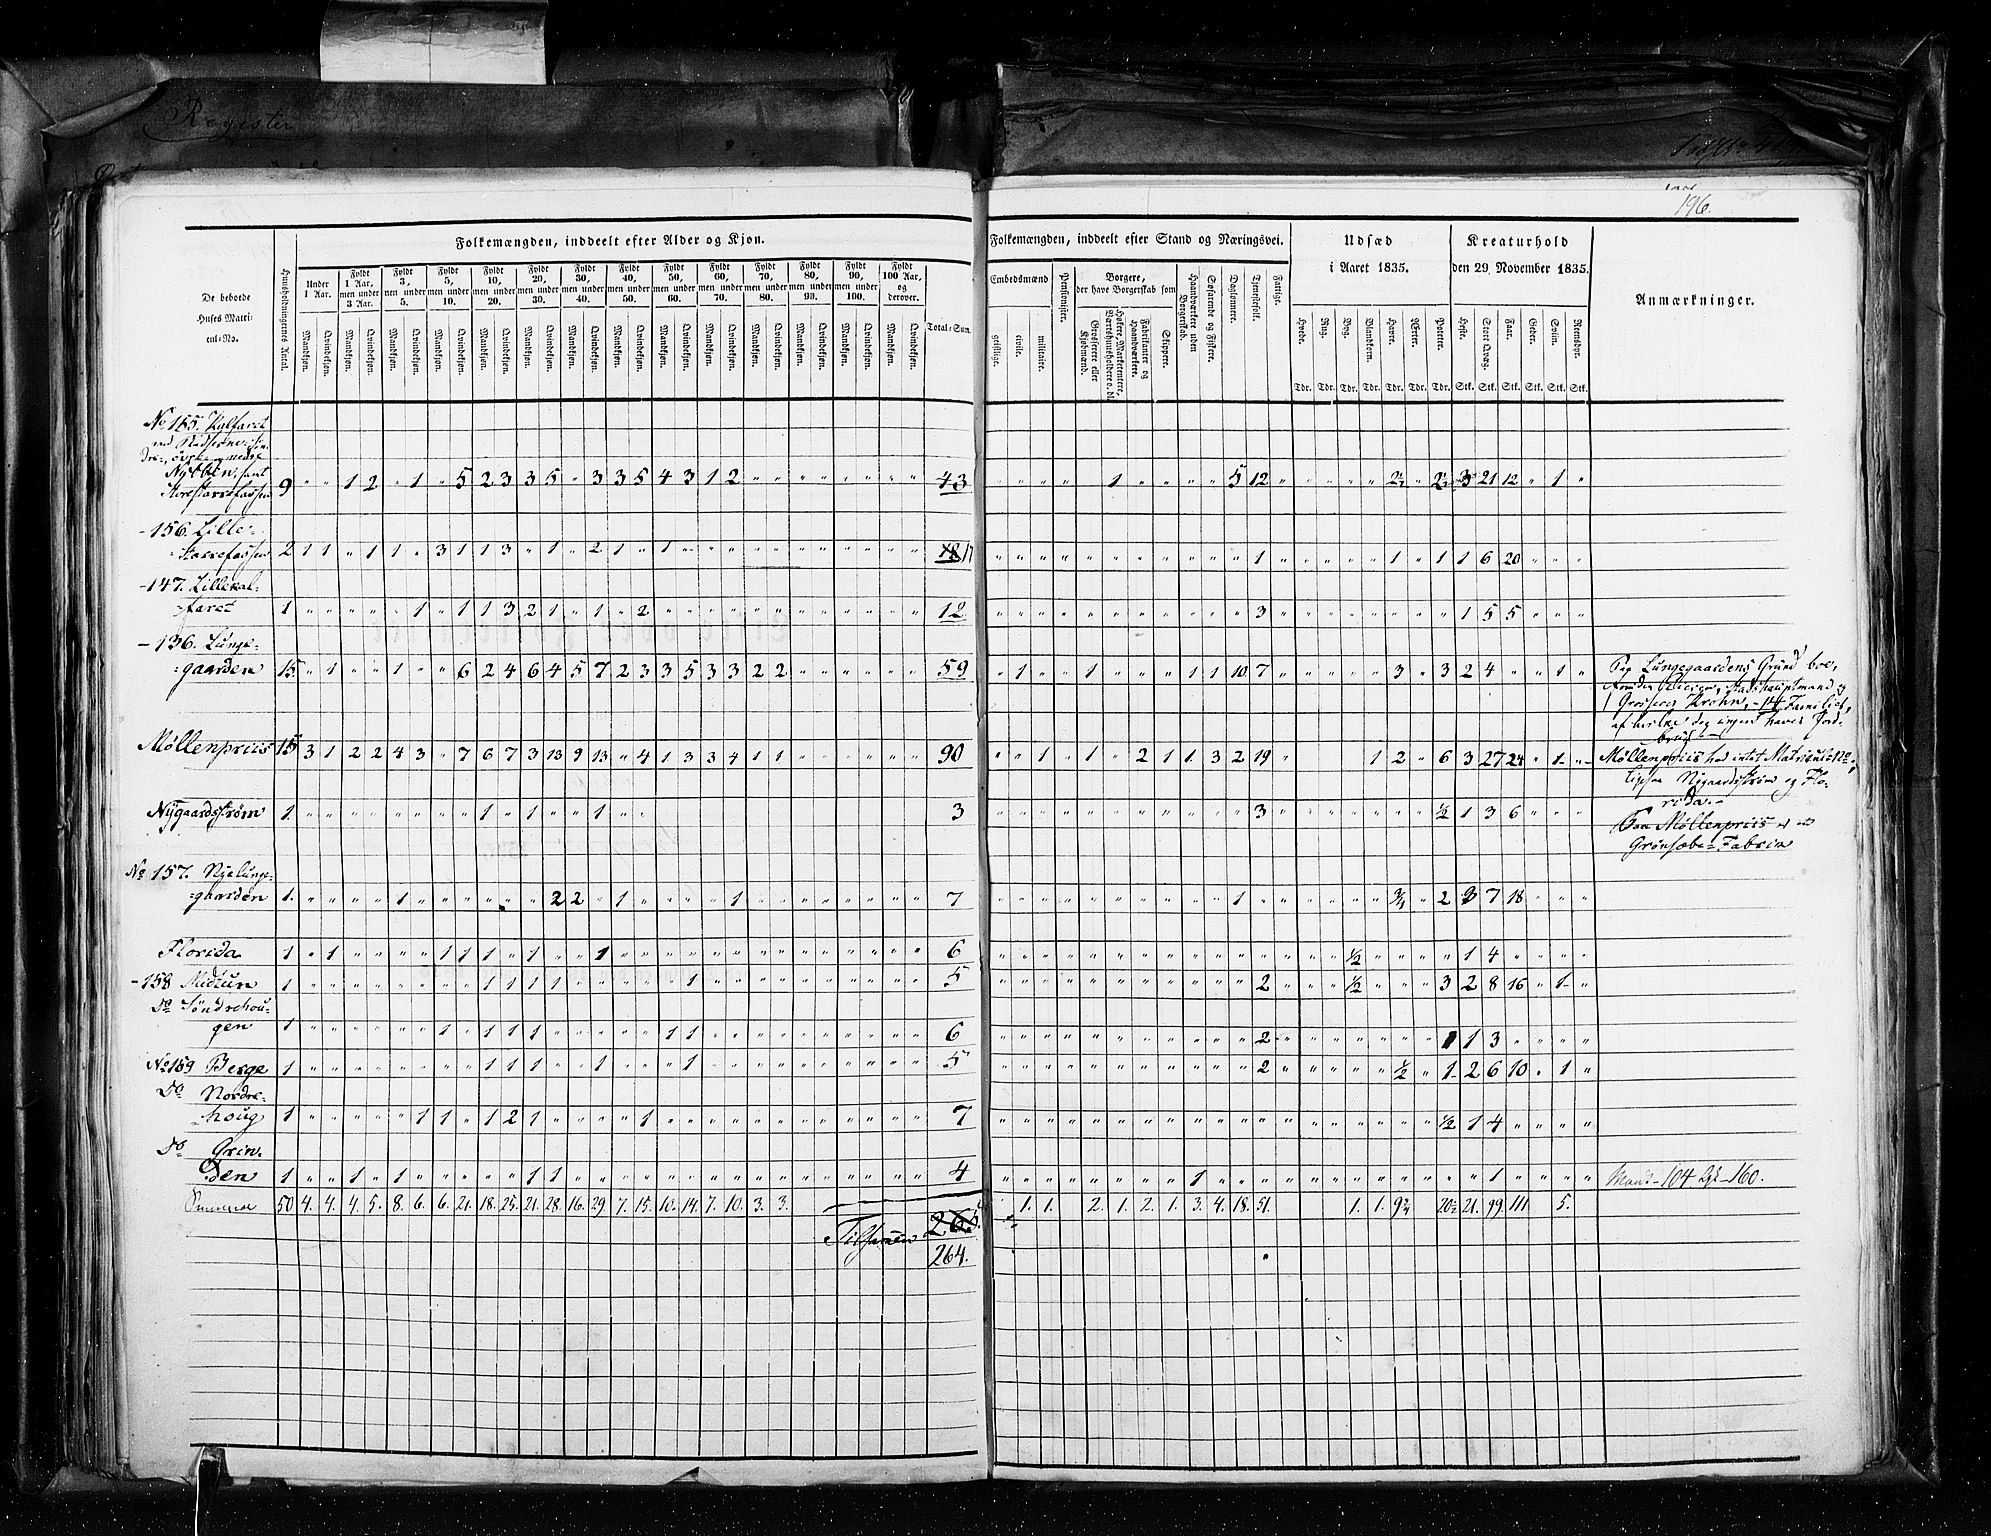 Register
196.
Folkemængden, inddeelt efter Alder og Kjøn.
De beboede Huses Matrikul-No.
Huusholdningernes Antal.
Under 1 Aar.
Fyldt 1 Aar, men under 3 Aar.
Fyldt 3, men under 5.
Fyldt 5, men under 10.
Fyldt 10, men under 20.
Fyldt 20, men under 30.
Fyldt 30, men under 40.
Fyldt 40, men under 50.
Fyldt 50, men under 60.
Fyldt 60, men under 70.
Fyldt 70, men under 80.
Fyldt 80, men under 90.
Fyldt 90, men under 100.
Fyldt 100 Aar, og derover.
Mandkjøn. Qvindekjøn.
Total-Sum.
Folkemængden, inddeelt efter Stand og Næringsvei.
Embedsmænd
geistlige.
civile.
militaire.
Pensionister.
Borgere, der have Borgerskab som
Grosserere eller Kjøbmænd.
Høkere, Marketentere, Værtshuusholdere o. dl.
Fabrikanter og Haandværkere.
Skippere.
Haandværkere uden Borgerskab.
Søfarende og Fiskere.
Daglønnere.
Tjenestefolk.
Fattige.
Udsæd i Aaret 1835.
Hvede. Tdr.
Rug. Tdr.
Byg. Tdr.
Blandkorn. Tdr.
Havre. Tdr.
Ærter. Tdr.
Poteter. Tdr.
Kreaturhold den 29 November 1835.
Heste. Stk.
Stort Qvæg. Stk.
Faar. Stk.
Geder. Stk.
Sviin. Stk.
Rensdyr. Stk.
Anmærkninger.
No 155. Kalfaret
9 " " 1 2 " 1 " 5 2 3 3 5 " 3 3 5 4 3 1 2 43
1 5 12 3 21 12 " 1 "
- 156. Lille-
Starefossen 2 1 1 " 1 1 " 3 1 1 3 " 1 " 2 1 " 1 17
1 1 1 1 6 20
- 147. Lillekal-
faret 1 1 " 1 1 3 2 1 " 1 " 2 12
3 1 5 5
- 136. Lunge-
gaarden 15. " 1 " " 1 " " 6 2 4 6 4 5 7 2 3 3 5 3 3 2 2 59
1 1 1 1 10 7 3 " 3 2 4 " " 1 "
Paa Lungegaardens Grund boe,
Stadshauptmand og
Krohn, - 14 Familier,
Møllenpriis 15 3 1 2 2 4 3 " 7 6 7 3 13 9 13 " 4 1 3 3 4 1 1 90
1 1 2 1 1 3 2 19 1 2 " 6 3 27 24 " 1
Møllenpriis har intet Matricul-No,
Nygaardstrøm og Flo-
rida.-
Nygaardsstrøm 1. 1 " 1 " 1 3
3 ½ 1 3 6
Paa Møllenpriis er
Grønsæbe-Fabrik
No 157. Nyelunge-
gaarden 1. 1 2 2 " 1 1 7
1 2 3 7 18
Florida 1 " 1 1 1 1 " 1 " " 1 6
½ 1 4
- 158 Midtun 1 1 1 1 1 1 5
2 ½ 3 2 8 16 " 1 "
Do Søndrehou-
gen 1 1 " 1 1 1 1 1 6
2 1 1 3
No 159 Berge 1 1 1 1 " " 1 1 5
2 ½ " 1 2 6 10 " 1 "
Do Nordre-
houg 1 1 1 " 1 2 1 1 7
½ 1 4
Do Grin-
den 1 " " 1 " 1 1 1 4
1 1
Mandk-104 Qk-160.
50 4. 4. 4. 5. 8. 6. 6. 21. 18. 25. 21. 28. 16. 29. 7. 15. 10. 14. 7. 10. 3. 3.
1. 1. 2. 1. 2. 1. 3. 4. 18. 51. 1. 1. 21. 99. 111. 5.
Tilsammen 265.
264.